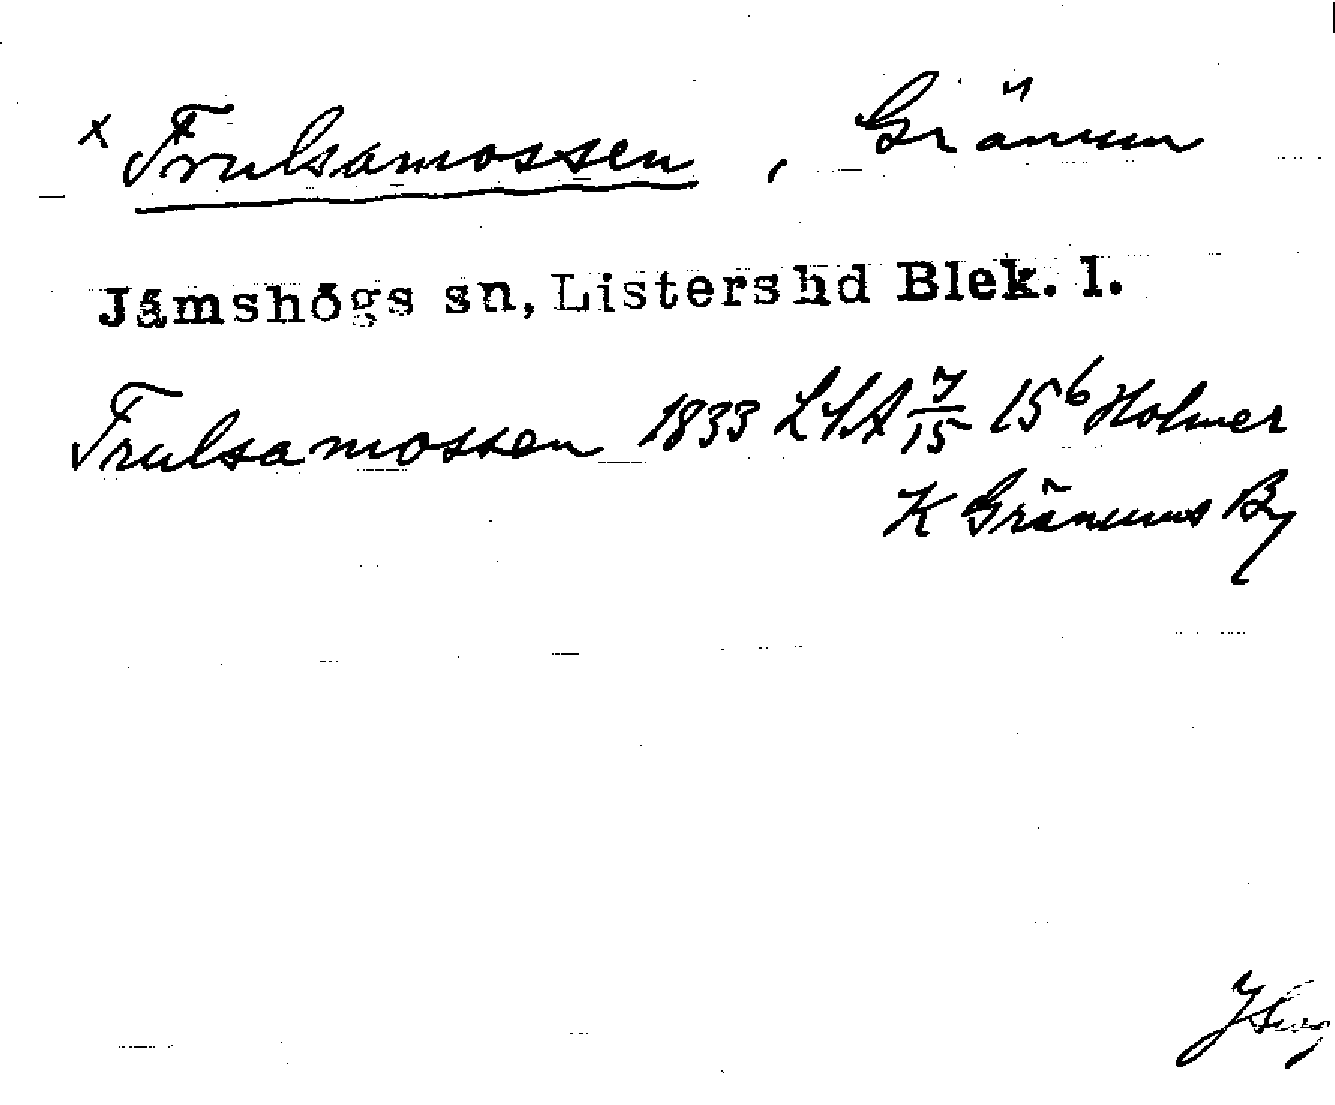 x Trulsamossen , Gränum
Jämshögs sn, Listers hd Blek. l.
Trulsamossen 1833 LSA 7/15 15⁶ Holmer
K Gränums By